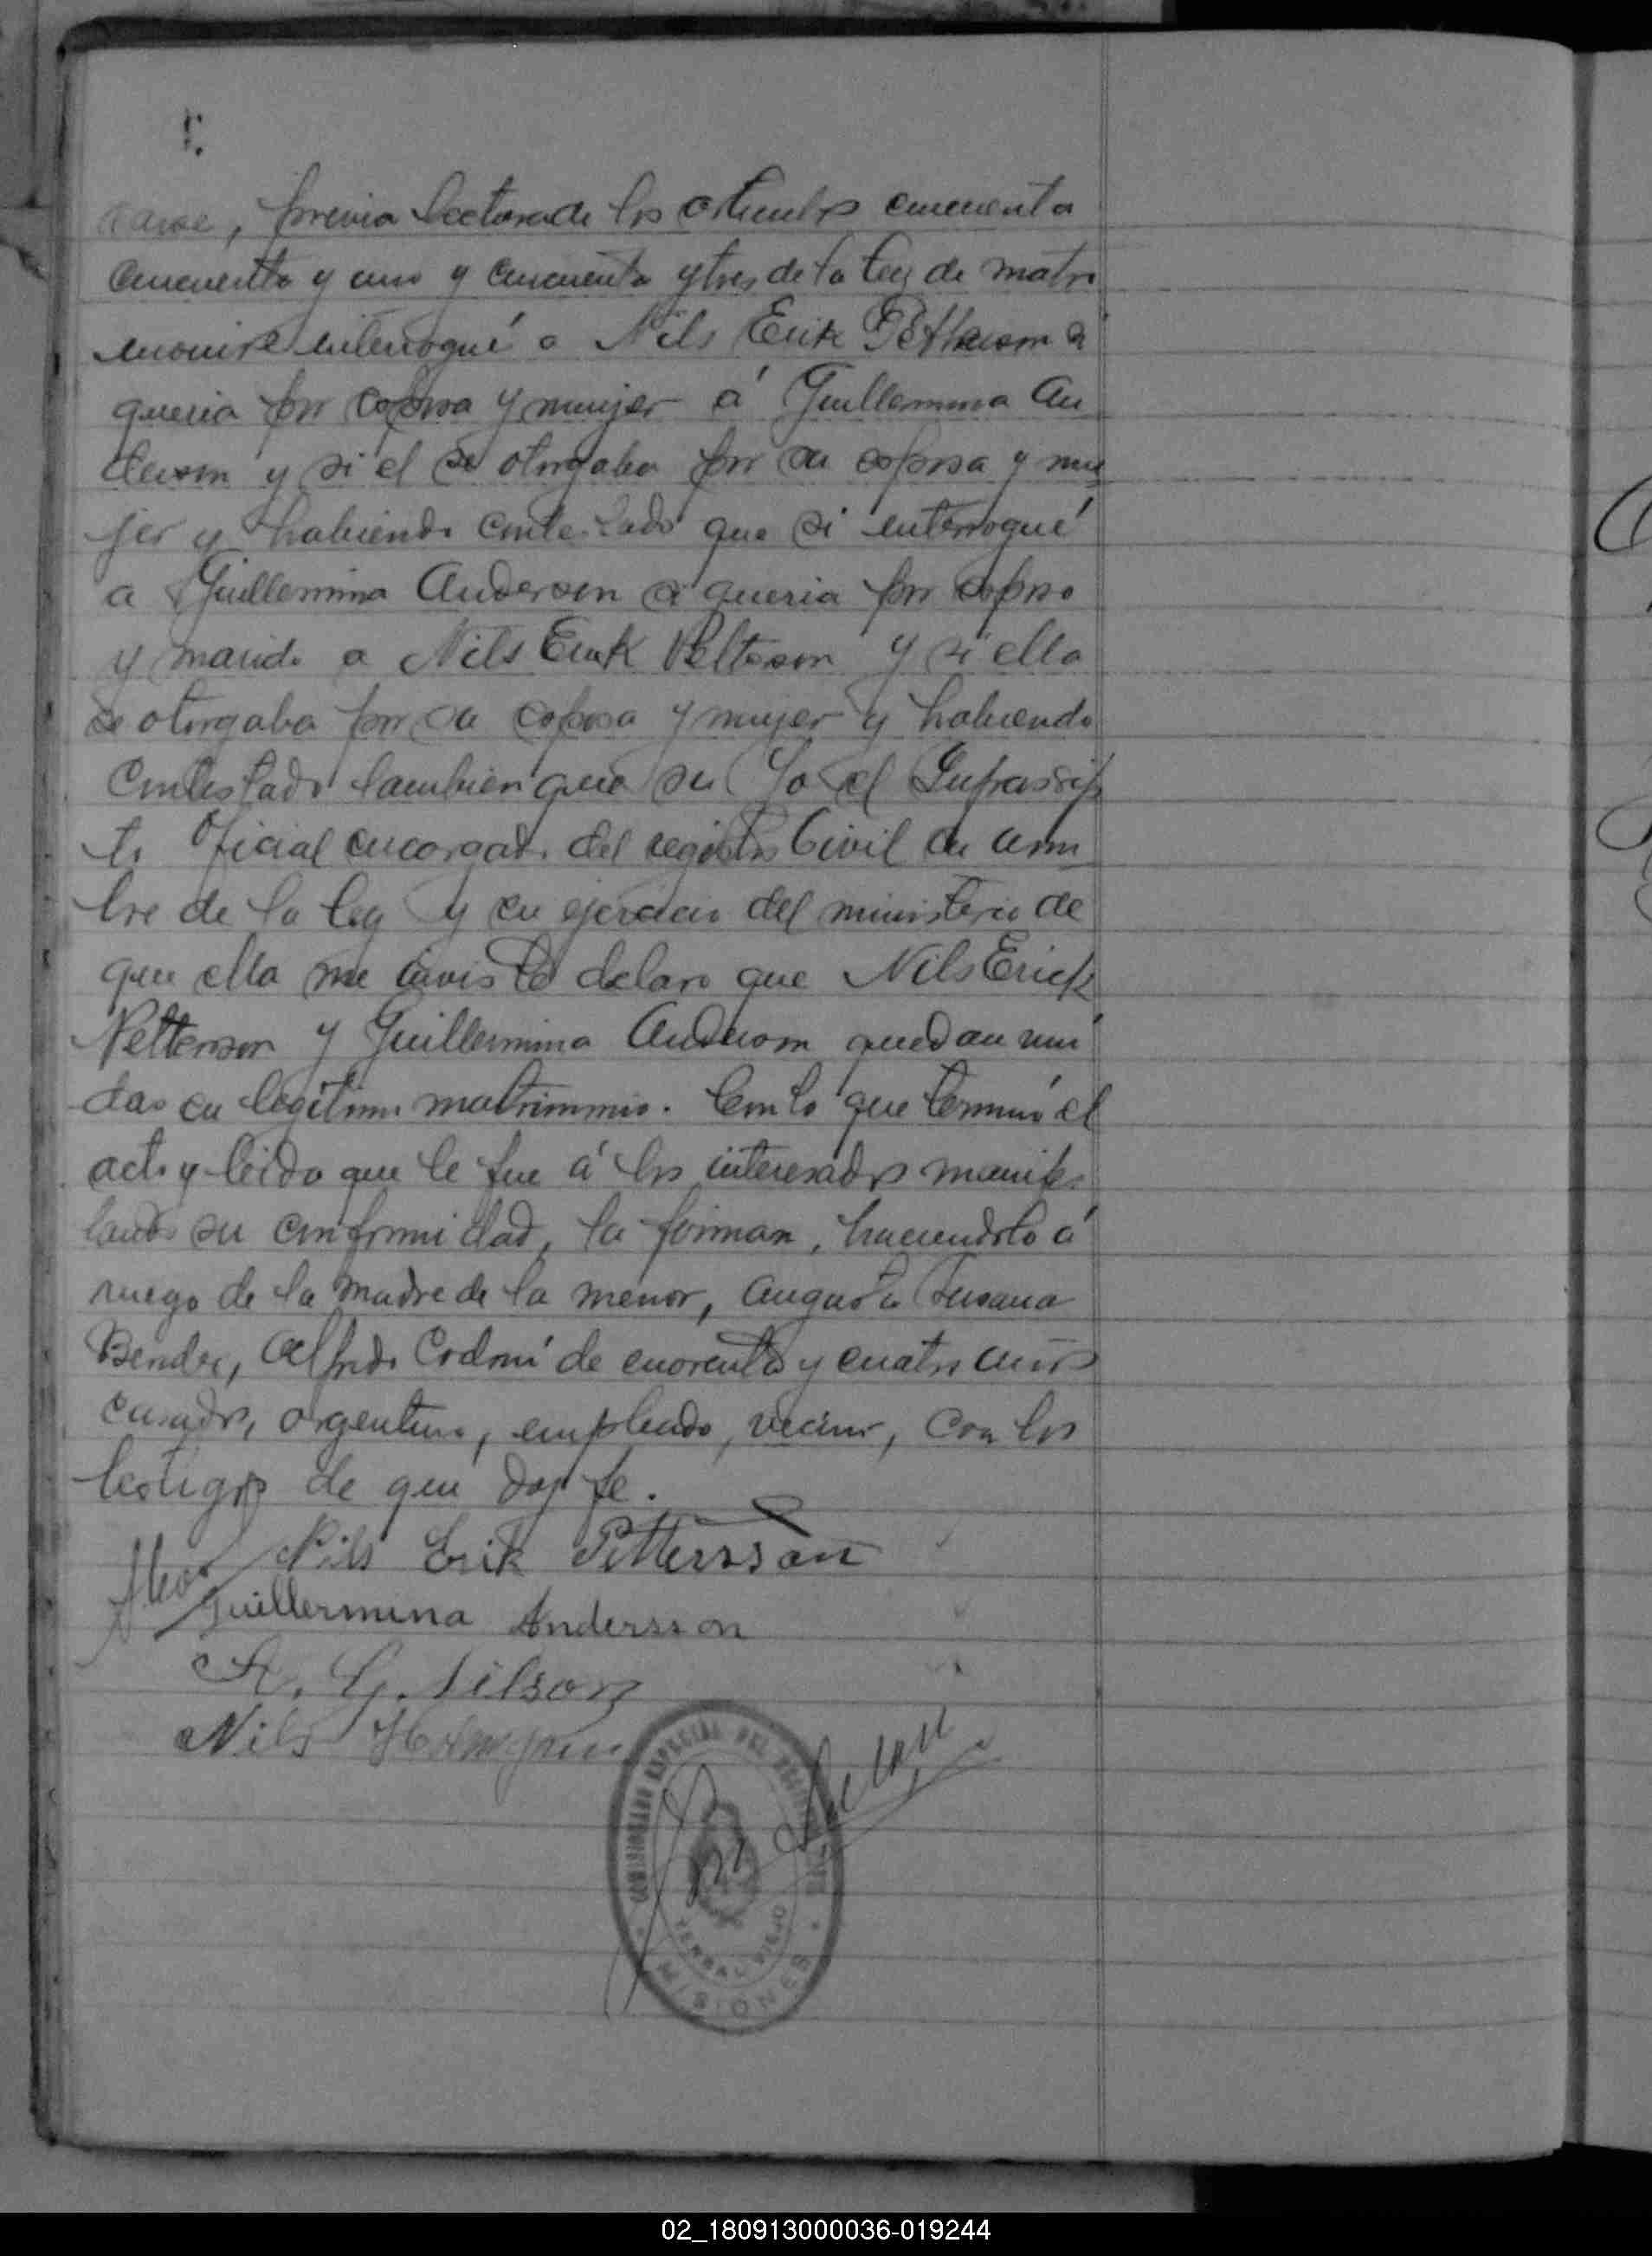 carse, previa lectura de los artículos cincuenta
cincuenta y uno y cincuenta y tres de la ley de matri
monio interrogué a Nils Erik Petterson si
queria por esposa y mujer á Guillermina An
derson y si el se otorgaba por su esposa y mu
jer y habiendo contestado que si interrogué
a Guillermina Anderson si queria por esposo
y marido a Nils Erik Petterson y si ella
se otorgaba por su esposa y mujer y habiendo
contestado tambien que si Yo el Infrascrip
to Oficial encargado del registro Civil en nom
bre de la ley y en ejercicio del ministerio de
que ella me inviste declaro que Nils Erick
Petterson y Guillermina Anderson quedan uni
dos en legitimo matrimonio. Con lo que terminó el
acto y leida que le fue á los interesados manifes
tando su conformidad, la firman, haciendolo á
ruego de la madre de la menor, Augusta Susana
Bender, Alfredo Codoni de cuarenta y cuatro años
casado, argentino, empleado, vecino, con los
testigos de que doy fe.
Nils Erik Pettersson
Guillermina Andersson
A. G. Nilson
Nils
COMISIONADO ESPECIAL DEL REGISTRO CIVIL
YERBAL VIEJO
MISIONES
02_180913000036-019244